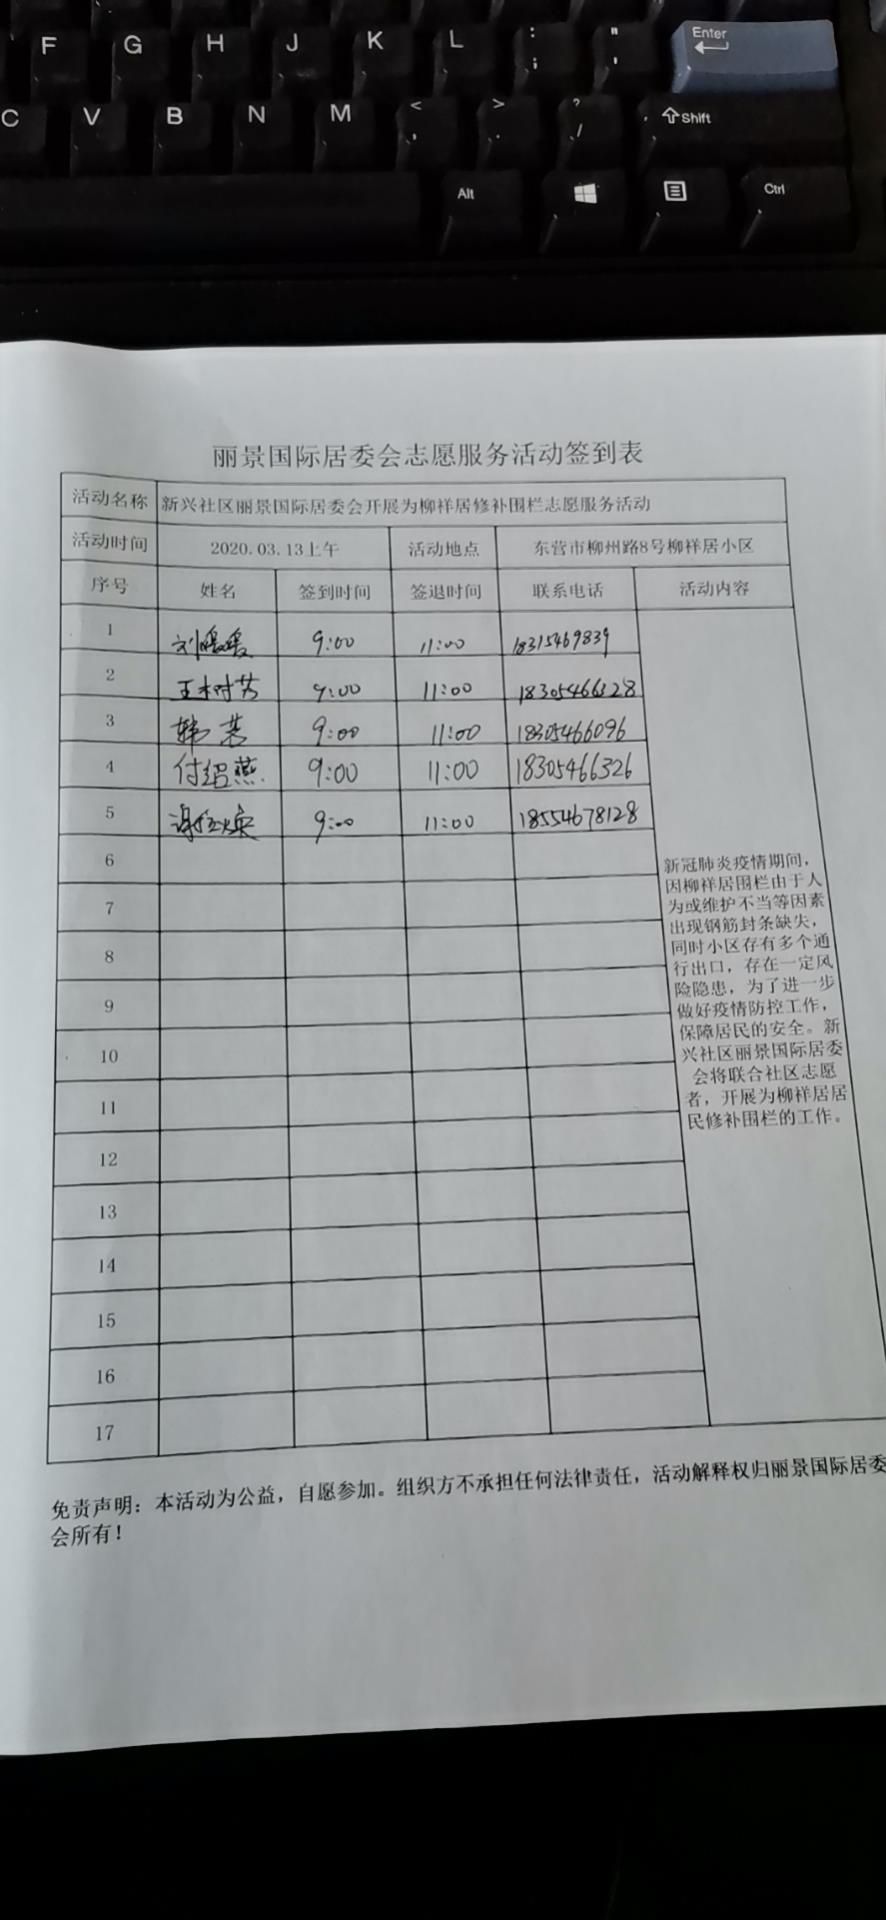 F G H J K L : ; " ' Enter
C V B N M < , > . ? / Shift
Alt Ctrl
丽景国际居委会志愿服务活动签到表
活动名称 新兴社区丽景国际居委会开展为柳祥居修补围栏志愿服务活动
活动时间 2020.03.13上午 活动地点 东营市柳州路8号柳祥居小区
序号 姓名 签到时间 签退时间 联系电话 活动内容
1 刘媛媛 9:00 11:00 18315469839
2 王树芳 9:00 11:00 18305466328
3 韩 9:00 11:00 18305466096
4 付绍燕 9:00 11:00 18305466326
5 9:00 11:00 18554678128
6
7
8
9
10
11
12
13
14
15
16
17
新冠肺炎疫情期间，
因柳祥居围栏由于人
为或维护不当等因素
出现钢筋封条缺失，
同时小区存有多个通
行出口，存在一定风
险隐患，为了进一步
做好疫情防控工作，
保障居民的安全。新
兴社区丽景国际居委
会将联合社区志愿
者，开展为柳祥居居
民修补围栏的工作。
免责声明：本活动为公益，自愿参加。组织方不承担任何法律责任，活动解释权归丽景国际居委
会所有！